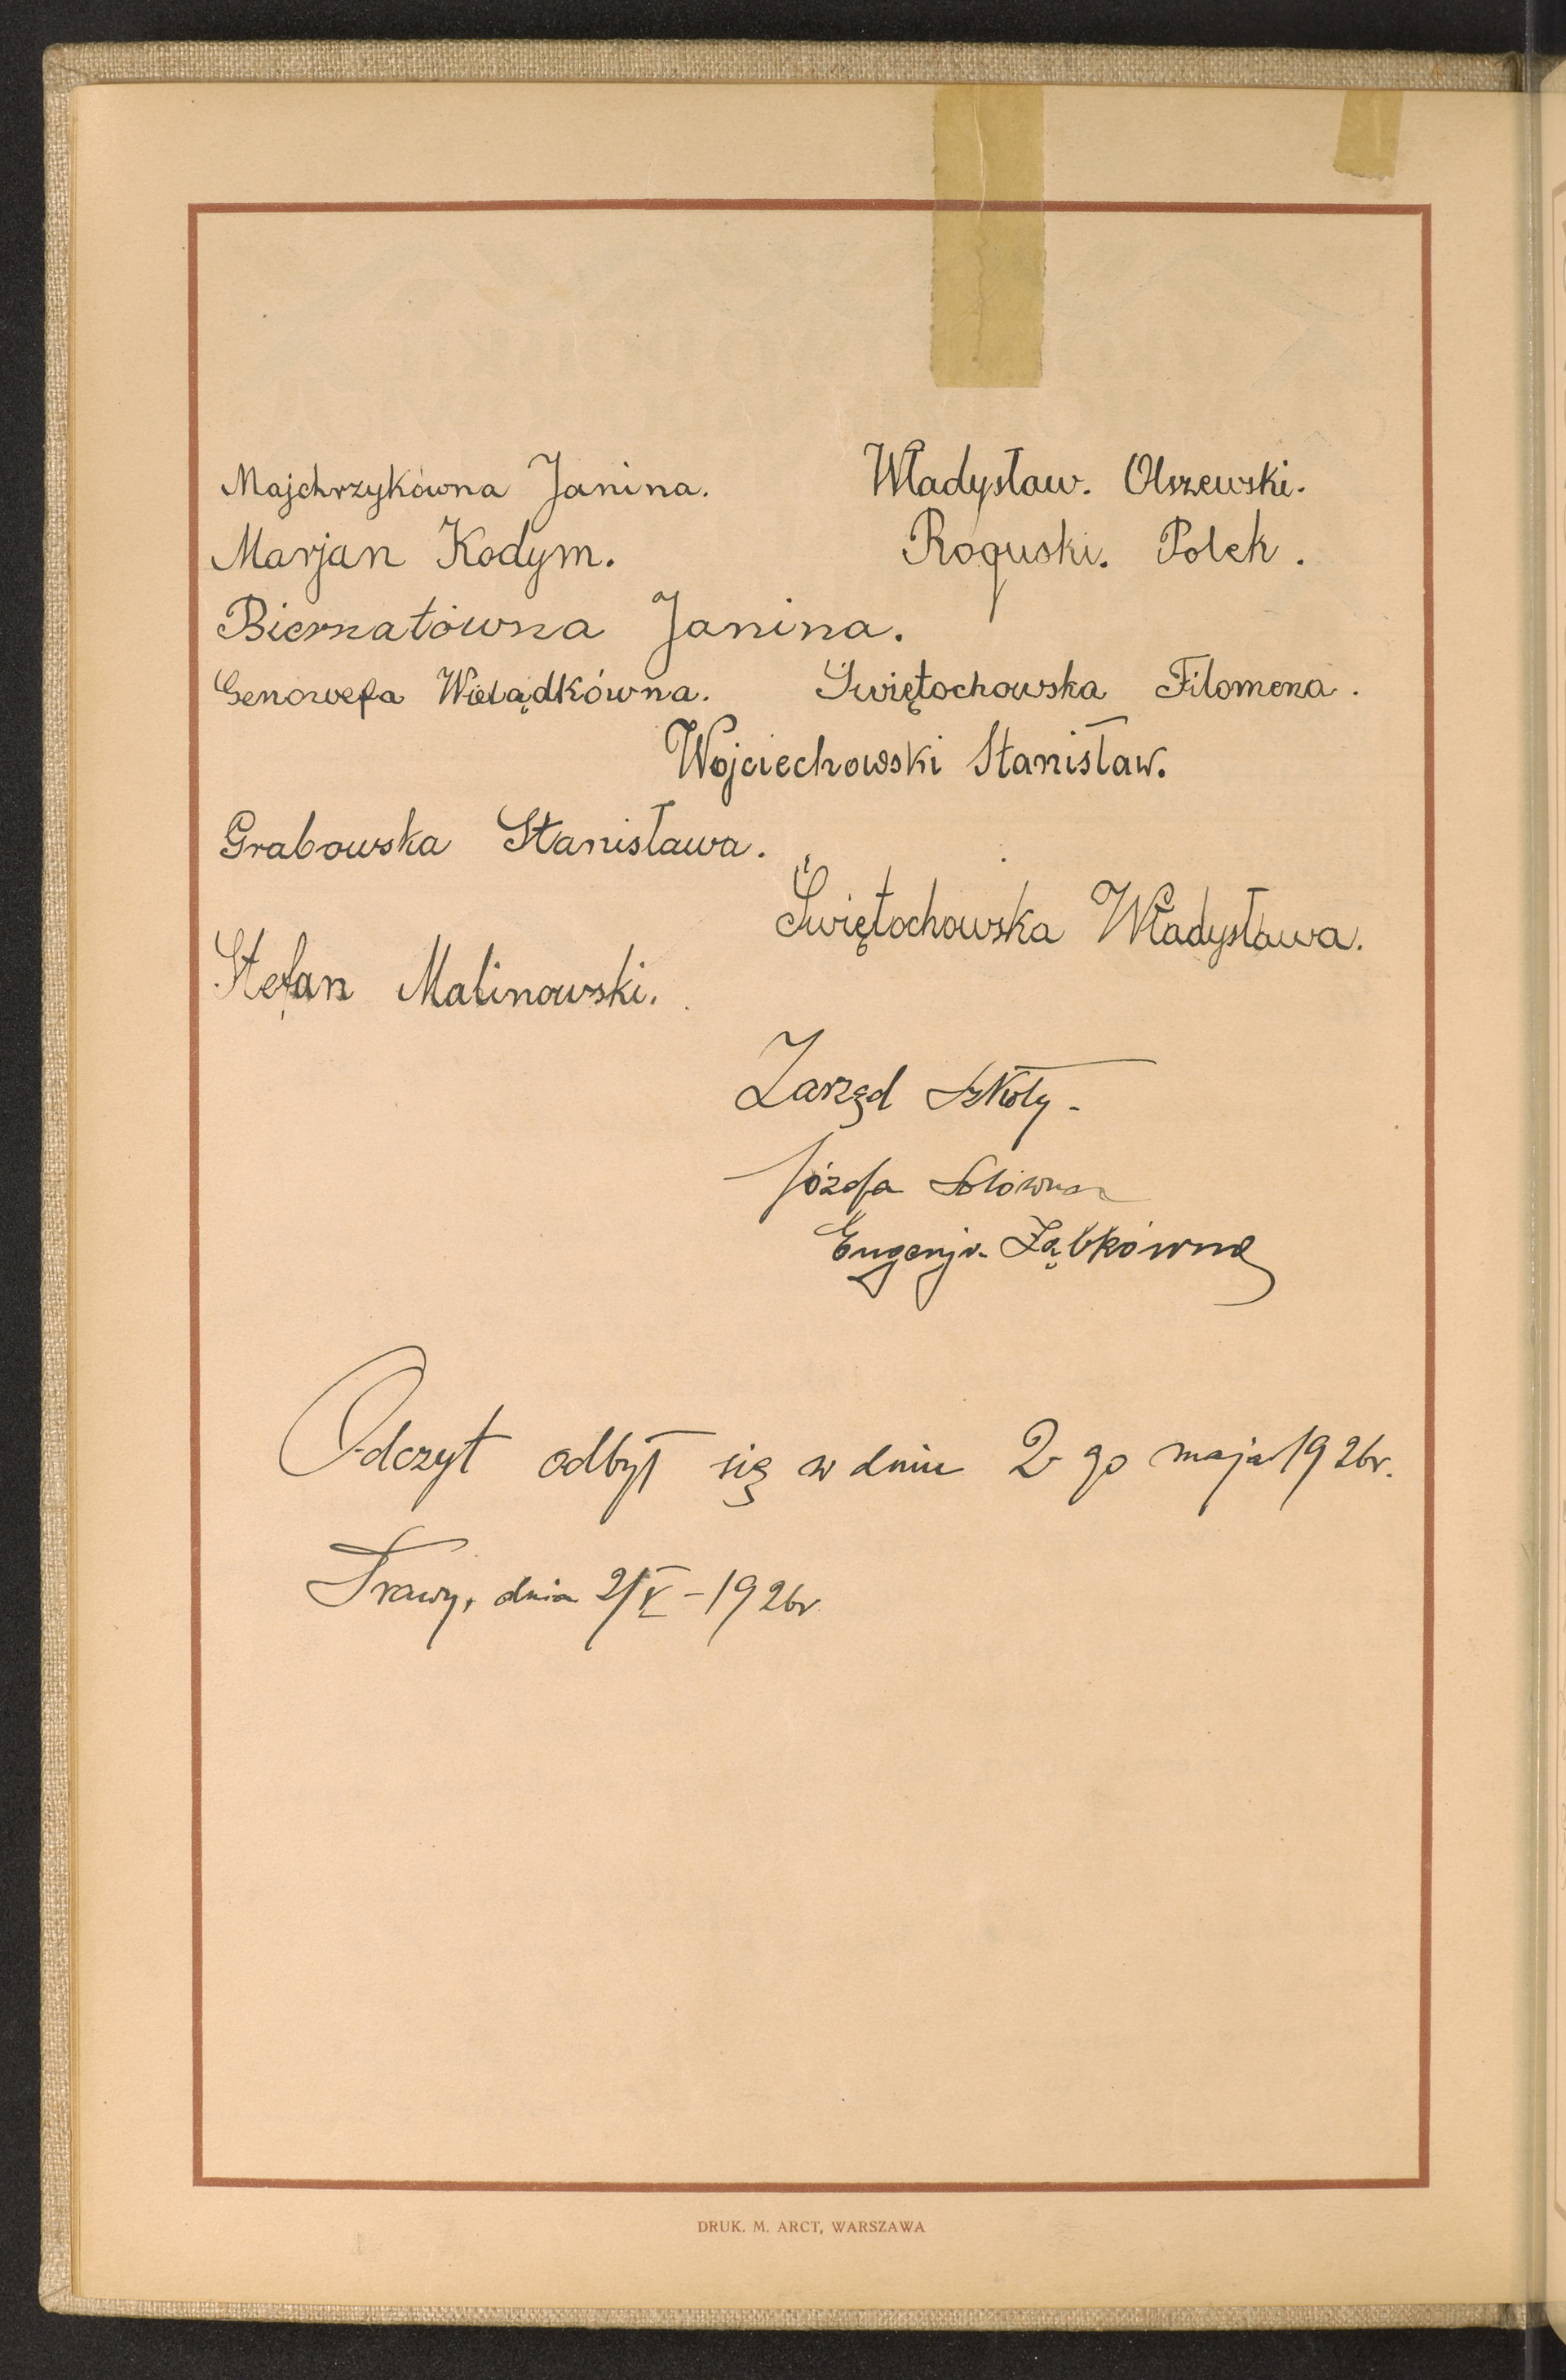 Majchrzykówna Janina. Władysław. Olszewski.
Marjan Kodym. Roguski. Polek.
Biernatówna Janina.
Genowefa Wielądkówna. Świętochowska Filomena.
Wojciechowski Stanisław.
Grabowska Stanisława.
Świętochowska Władysława.
Stefan Malinowski.
Zarząd Szkoły -
Józefa Sotówna
Eugenja Ząbkówna
Odczyt odbył się w dniu 2-go maja 1926r.
Trawy, dnia 2/V - 1926r
DRUK. M. ARCT, WARSZAWA